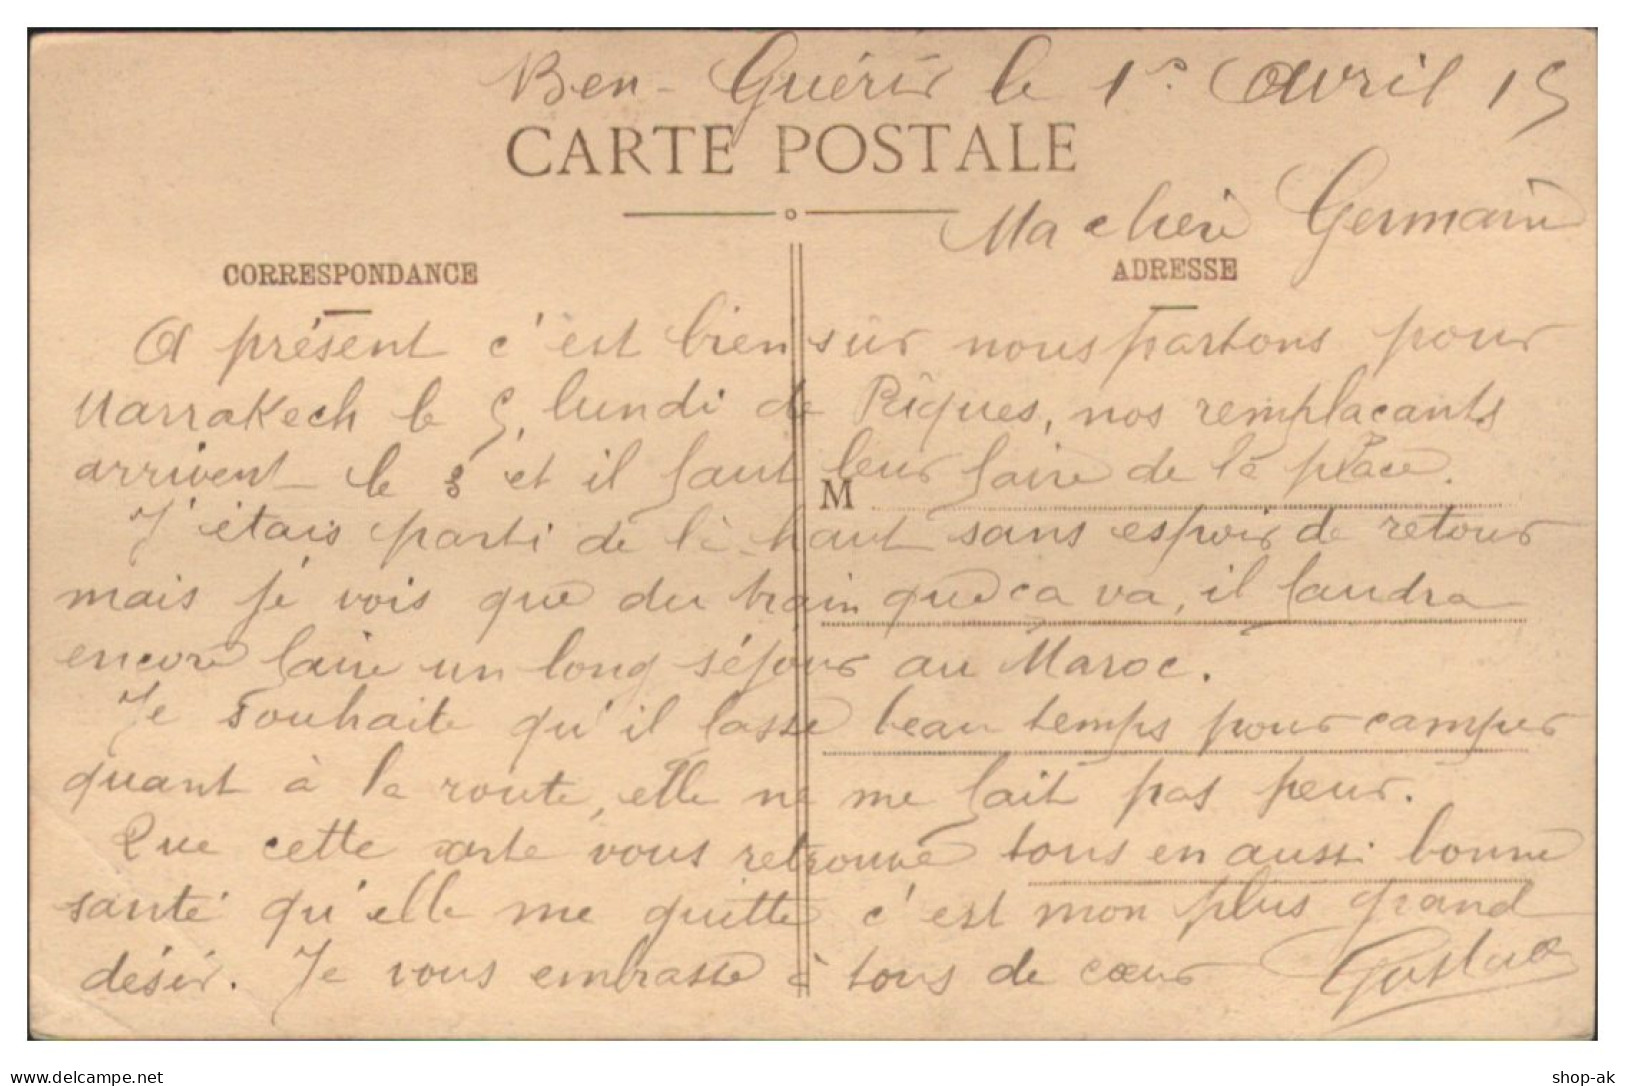 Ben-Guérir le 1er Avril 15
CARTE POSTALE
Ma chère Germaine
CORRESPONDANCE
ADRESSE
A présent c'est bien sûr nous partons pour
Marrakech le 5, lundi de Pâques, nos remplaçants
arrivent le 3 et il faut leur faire de la place.
M
J'étais parti de là-haut sans espoir de retour
mais je vois que du train que ça va, il faudra
encore faire un long séjour au Maroc.
Je souhaite qu'il fasse beau temps pour camper
quant à la route, elle ne me fait pas peur.
Que cette carte vous retrouve tous en aussi bonne
santé qu'elle me quitte c'est mon plus grand
désir. Je vous embrasse à tous de cœur Gustave
www.delcampe.net
shop-ak